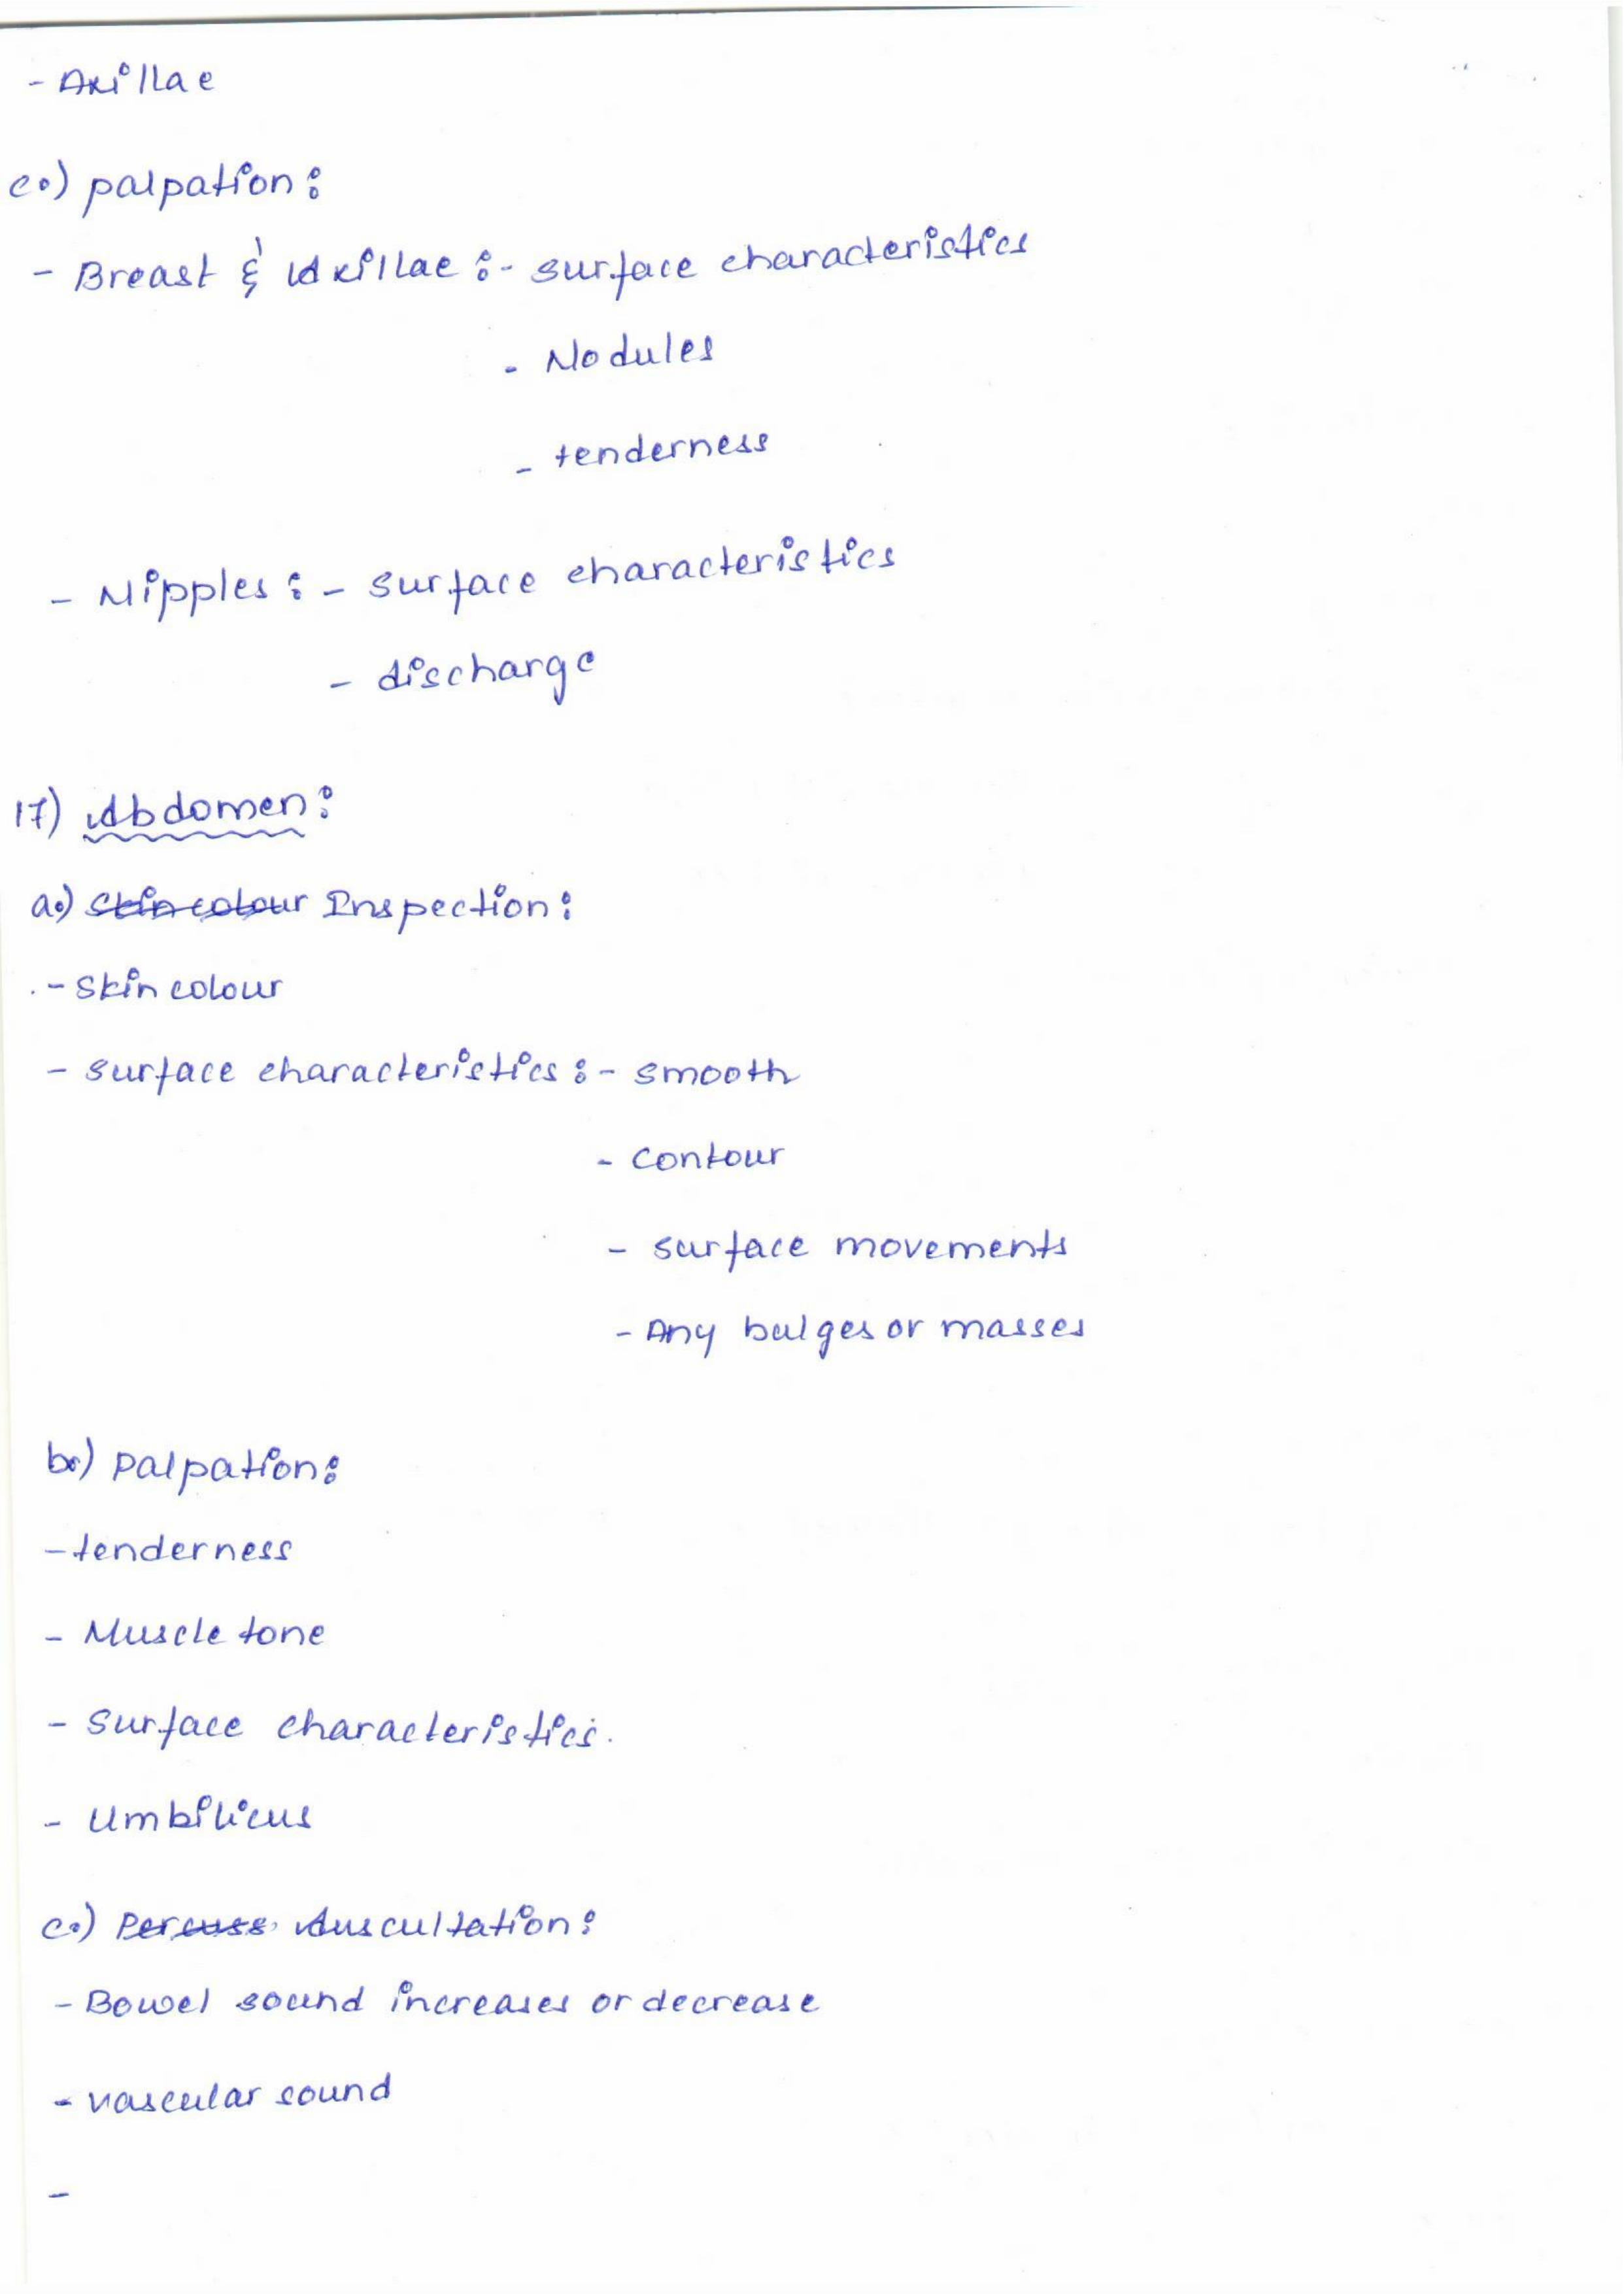 - Axillae
c.) palpation :
- Breast & Axillae :- surface characteristics
- Nodules
- tenderness
- Nipples : - surface characteristics
- discharge
17) Abdomen :
a.) Skin colour Inspection :
- skin colour
- surface characteristics :- smooth
- contour
- surface movements
- Any bulges or masses
b.) palpation :
- tenderness
- Muscle tone
- surface characteristics.
- Umbilicus
c.) Percuss Auscultation :
- Bowel sound increases or decrease
- vascular sound
-